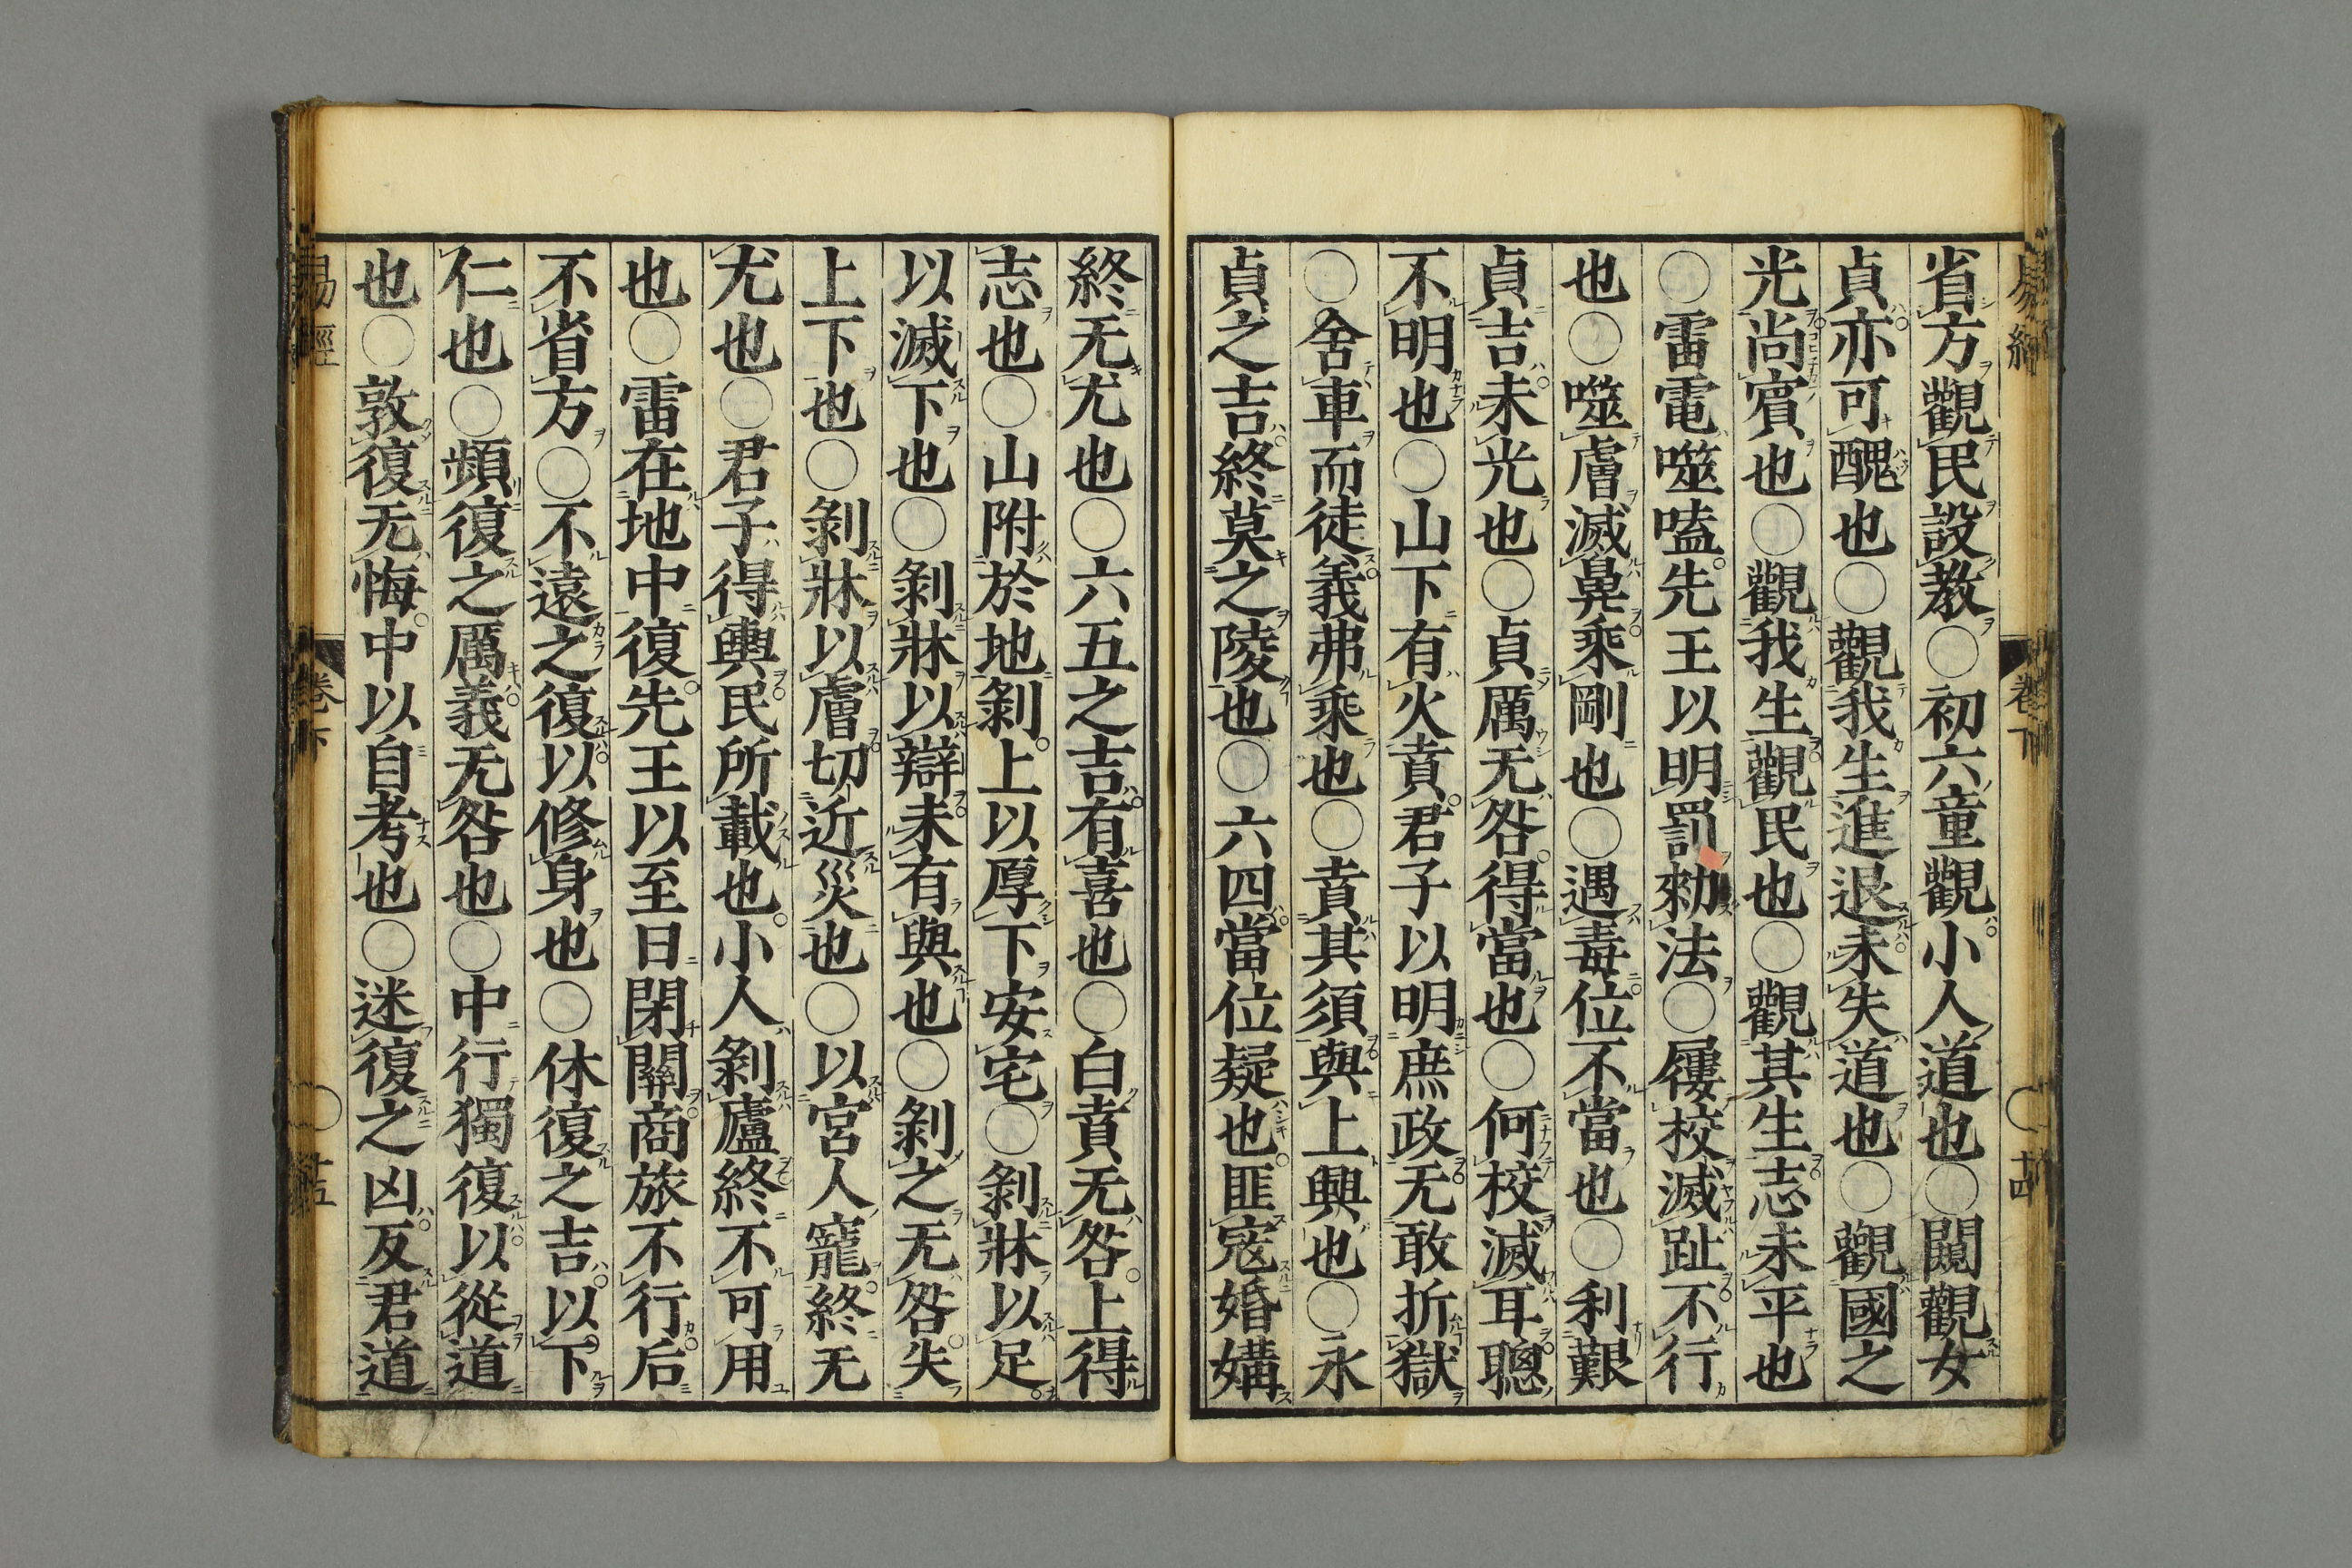 省方觀民設教○初六童觀小人道也○闚觀女
貞亦可醜也○觀我生進退未失道也○觀國之
光尚賓也○觀我生觀民也○觀其生志未平也
○雷電噬嗑先王以明罰勑法○屨校滅趾不行
也○噬膚滅鼻乘剛也○遇毒位不當也○利艱
貞吉未光也○貞厲无咎得當也○何校滅耳聰
不明也○山下有火賁君子以明庶政无敢折獄
○舍車而徒義弗乘也○賁其須與上興也○永
貞之吉終莫之陵也○六四當位疑也匪寇婚媾
終无尤也○六五之吉有喜也○白賁无咎上得
志也○山附於地剝上以厚下安宅○剝牀以足
以滅下也○剝牀以辯未有與也○剝之无咎失
上下也○剝牀以膚切近災也○以宮人寵終无
尤也○君子得輿民所載也小人剝廬終不可用
也○雷在地中復先王以至日閉關商旅不行后
不省方○不遠之復以修身也○休復之吉以下
仁也○頻復之厲義无咎也○中行獨復以從道
也○敦復无悔中以自考也○迷復之凶反君道
易經
卷下
○
十四
易經
卷下
○
十五